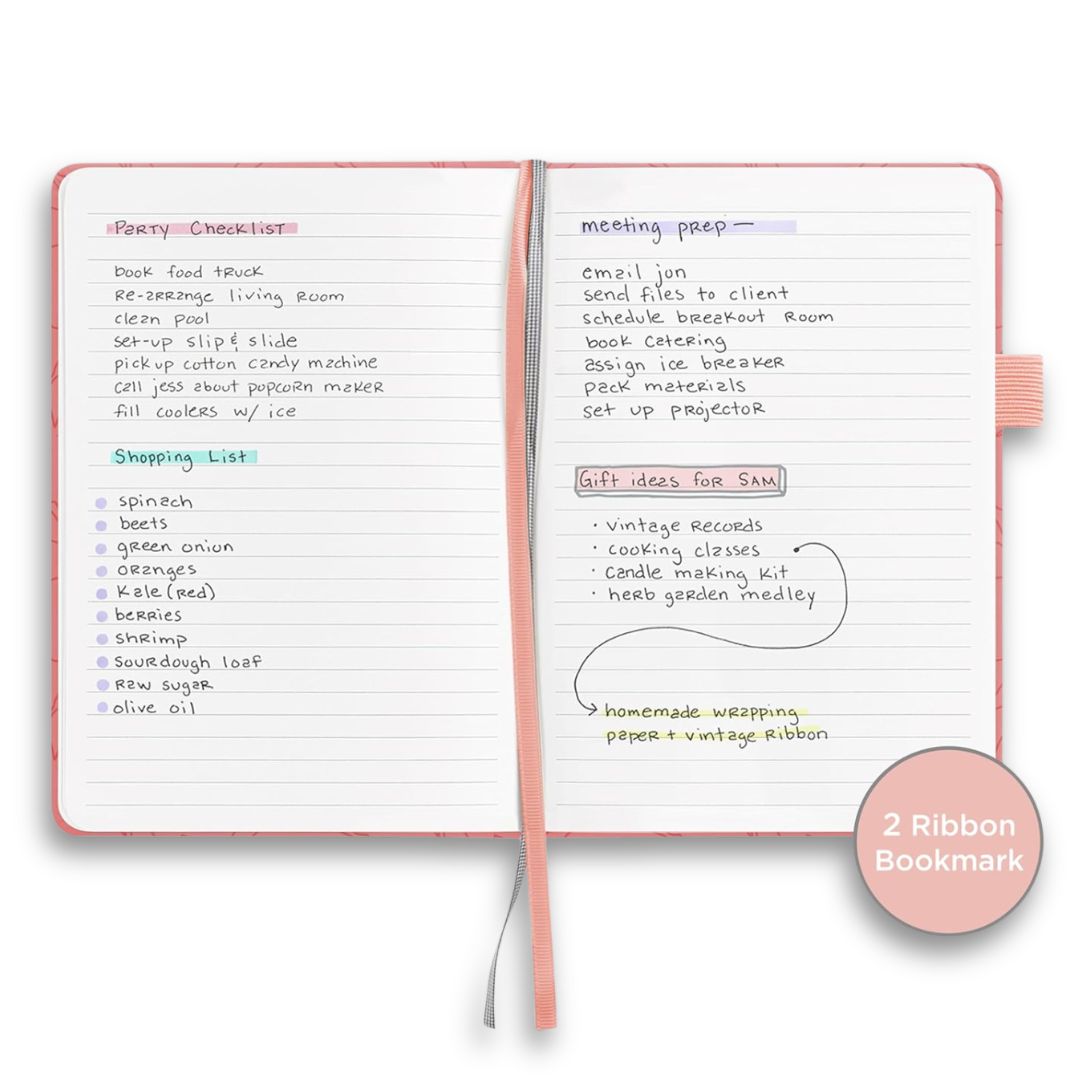 Party Checklist
book food truck
re-arrange living room
clean pool
set-up slip & slide
pick up cotton candy machine
call jess about popcorn maker
fill coolers w/ ice
Shopping List
spinach
beets
green onion
oranges
Kale (red)
berries
shrimp
sourdough loaf
raw sugar
olive oil
meeting prep —
email jon
send files to client
schedule breakout room
book catering
assign ice breaker
pack materials
set up projector
Gift ideas for SAM
· vintage records
· cooking classes
· candle making kit
· herb garden medley
homemade wrapping
paper + vintage ribbon
2 Ribbon
Bookmark